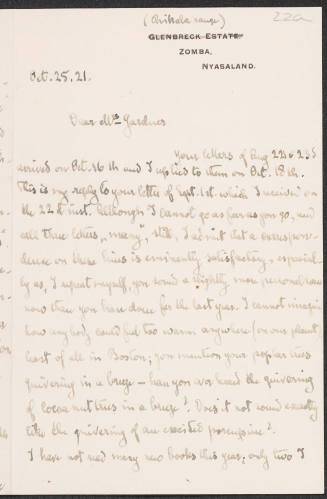 22a
GLENBRECK ESTATE.
ZOMBA,
NYASALAND.
Oct. 25, 21.
Dear Mrs Gardner
Your letters of Aug 22 & 23d
arrived on Oct. 16th and I replied to them on Oct. 18th.
This is my reply to your letter of Sept. 1st which I received on
the 22d inst. Although I cannot go as far as you go, and
call three letters "many", still, I admit that a correspon-
dence on these lines is eminently satisfactory, especial-
ly as, I repeat myself, you sound a slightly more personal note
now than you have done for the last year. I cannot imagine
how anybody could feel too warm anywhere (on our planet
least of all in Boston; you mention your poplar trees
quivering in a breeze — have you ever heard the quivering
of cocoanut trees in a breeze? Does it not sound exactly
like the quivering of an excited porcupine?
I have not read many new books this year, only two I